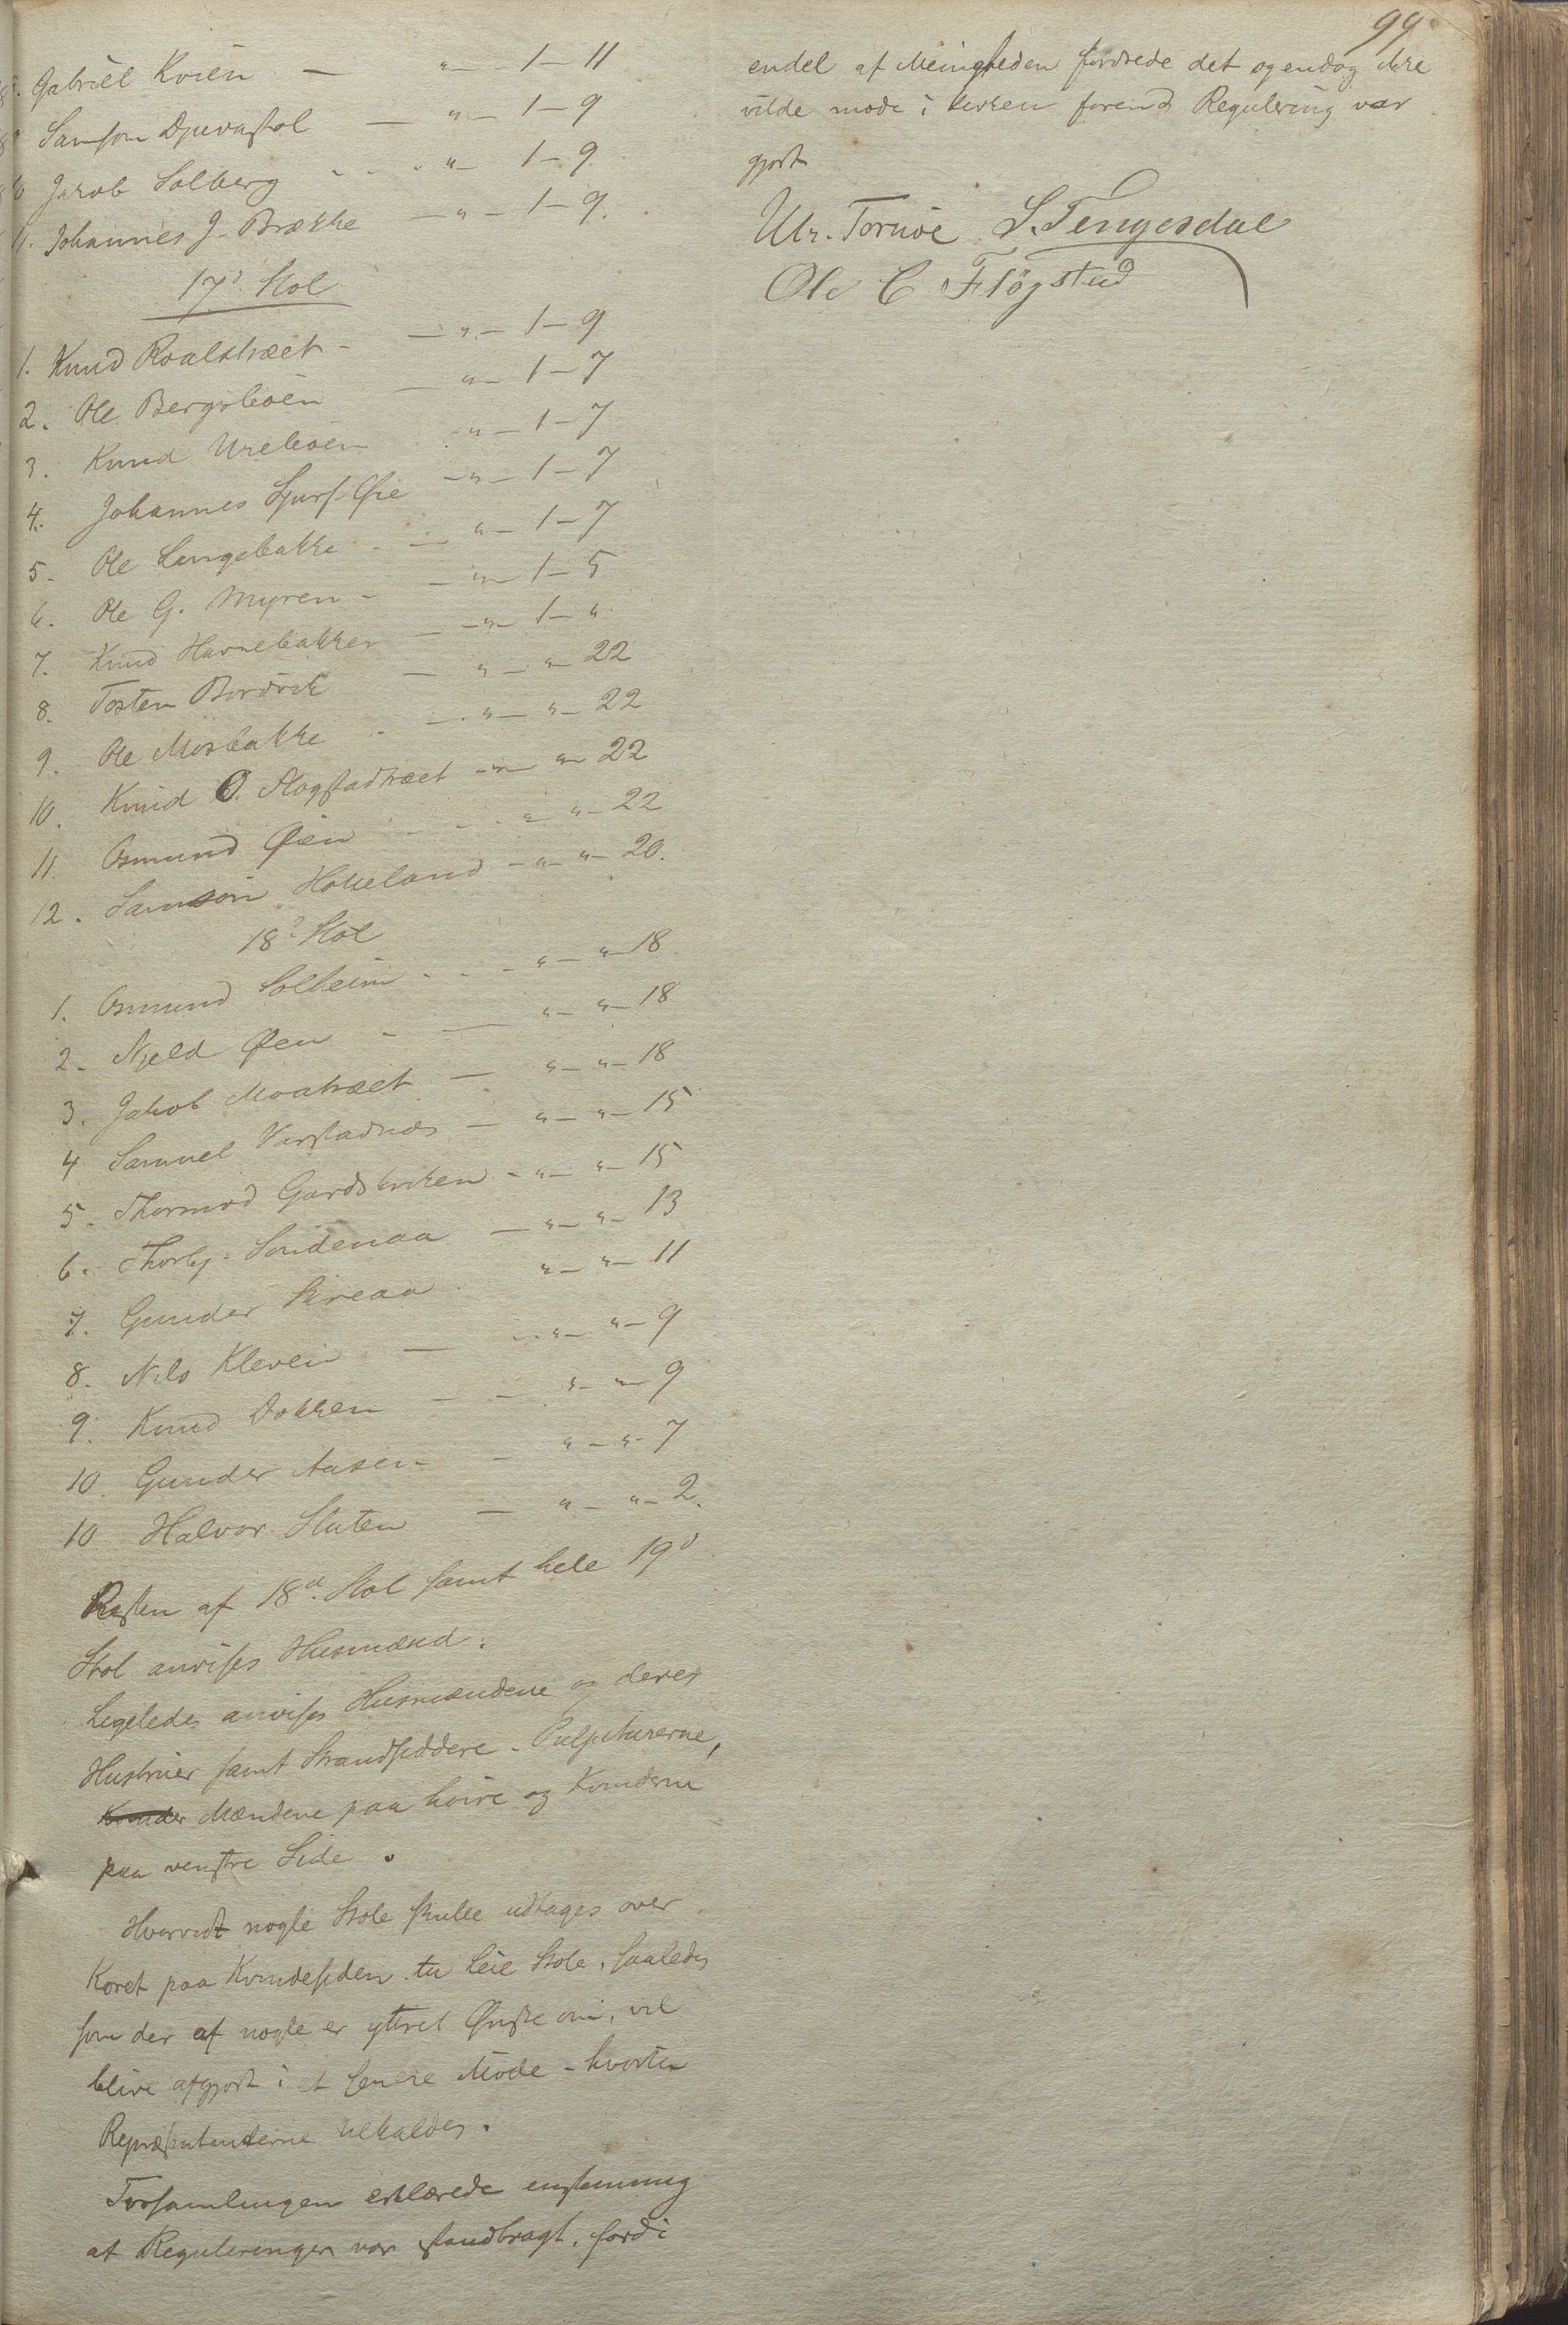 99
8. Gabriel Kvien — " — 1 — 11
9 Samson Djuvastøl — " — 1 — 9
10 Jakob Solberg . . . " — 1 — 9.
11. Johannes J. Brække — " — 1 — 9.
17d. Stol
1. Knud Roalstræet — " — 1 — 9
2. Ole Bergsleien — " — 1 — 7
3. Knud Ureleien . " — 1 — 7
4. Johannes Øie — " — 1 — 7
5. Ole Langebakke . — " — 1 — 7
6. Ole G. Myren — " — 1 — 5
7. Knud Havrebakken — " — 1 — "
8. Tosten Bordvik — " — " — 22
9. Ole Mosbakke . — " — " — 22
10. Knud O. Flogstadtræet — " — " — 22
11. Osmund Øien . . . " — " — 22
12. Samson Hokeland — " — " — 20.
18d Stol
1. Osmund Solheim . . . " — " — 18
2. Njeld Øen — " — " — 18
3. Jakob Moatræet — " — " — 18
4 Samuel Varstadnæs — " — " — 15
5. Thormod Gardskirken — " — " — 15
6. Thorbj. Søndenaa — " — " — 13
7. Gunder Kireaa . " — " — 11
8. Nils Kleven — " — " — 9
9. Knud Dokken — " — " — 9
10. Gunder Aasen — " — " — 7
10 Halvor Sluten — " — " — 2.
Resten af 18d. Stol samt hele 19d
Stol anvises Husmænd.
Ligeledes anvises Husmændene og deres
Hustruer samt Strandsiddere - Pulpiturerne,
Kvinder Mændene paa høire og Kvinderne
paa venstre Side.
Hvorvidt nogle Stole skulle udtages over
Koret paa Kvindesiden til Leie Stole, saaledes
som der af nogle er yttret Ønske om, vil
blive afgjort i et senere Møde - hvortil
Repræsentanterne tilkaldes.
Forsamlingen erklærede enstemmig
at Reguleringen var istandbragt, fordi
endel af Menigheden fordrede det og endog ikke
vilde møde i kirken førend Regulering var
gjort
Ulr. Tornøe S. Tengesdal
Ole C Flögstad